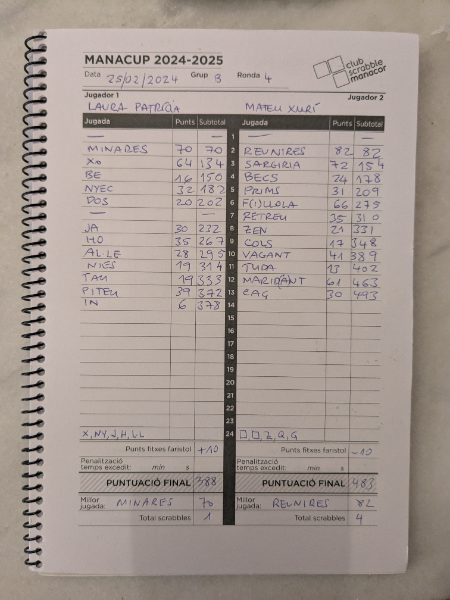 MANACUP 2024-2025
club scrabble manacor
Data 25/02/2024 Grup B Ronda 4
Jugador 1 Jugador 2
LAURA PATRÍCIA MATEU XURÍ
Jugada Punts Subtotal Jugada Punts Subtotal
— — 1 — —
MINARES 70 70 2 REUNIRES 82 82
XO 64 134 3 SARGIRIA 72 154
BE 16 150 4 BECS 24 178
NYEC 32 182 5 PRIMS 31 209
DOS 20 202 6 F(I)LLOLA 66 275
— — 7 RETREU 35 310
JA 30 232 8 ZEN 21 331
HO 35 267 9 COLS 17 348
AL·LE 28 295 10 VAGANT 41 389
NIÉS 19 314 11 TUDA 13 402
TAU 19 333 12 MARID(A)NT 61 463
PITEU 39 372 13 CAG 30 493
IN 6 378 14
15
16
17
18
19
20
21
22
23
X, NY, J, H, L·L 24 □□, Z, Q, G
Punts fitxes faristol +10 Punts fitxes faristol -10
Penalització temps excedit: min s Penalització temps excedit: min s
PUNTUACIÓ FINAL 388 PUNTUACIÓ FINAL 483
Millor jugada: MINARES 70 Millor jugada: REUNIRES 82
Total scrabbles 1 Total scrabbles 4